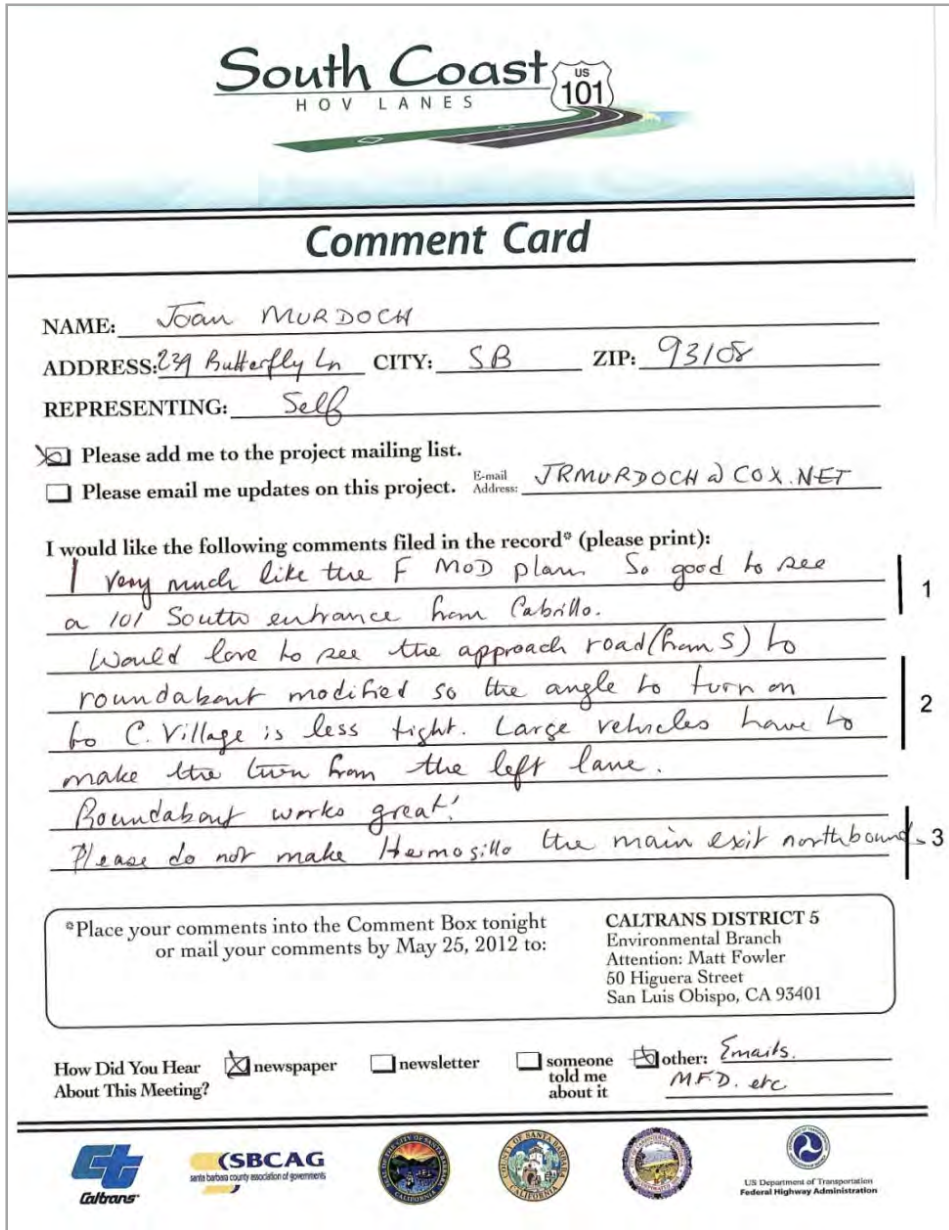 South Coast
HOV LANES
US
101
Comment Card
NAME: Joan MURDOCH
ADDRESS: 239 Butterfly Ln CITY: SB ZIP: 93108
REPRESENTING: Self
Please add me to the project mailing list.
Please email me updates on this project. E-mail Address: JRMURDOCH@COX.NET
I would like the following comments filed in the record* (please print):
I very much like the F MOD plan. So good to see
a 101 South entrance from Cabrillo.
1
Would love to see the approach road (from S) to
roundabout modified so the angle to turn on
to C. Village is less tight. Large vehicles have to
2
make the turn from the left lane.
Roundabout works great!
Please do not make Hermosillo the main exit northbound.
3
*Place your comments into the Comment Box tonight
or mail your comments by May 25, 2012 to:
CALTRANS DISTRICT 5
Environmental Branch
Attention: Matt Fowler
50 Higuera Street
San Luis Obispo, CA 93401
How Did You Hear
About This Meeting?
newspaper
newsletter
someone
told me
about it
other: Emails.
M.F.D. etc
Caltrans
SBCAG
santa barbara county association of governments
US Department of Transportation
Federal Highway Administration